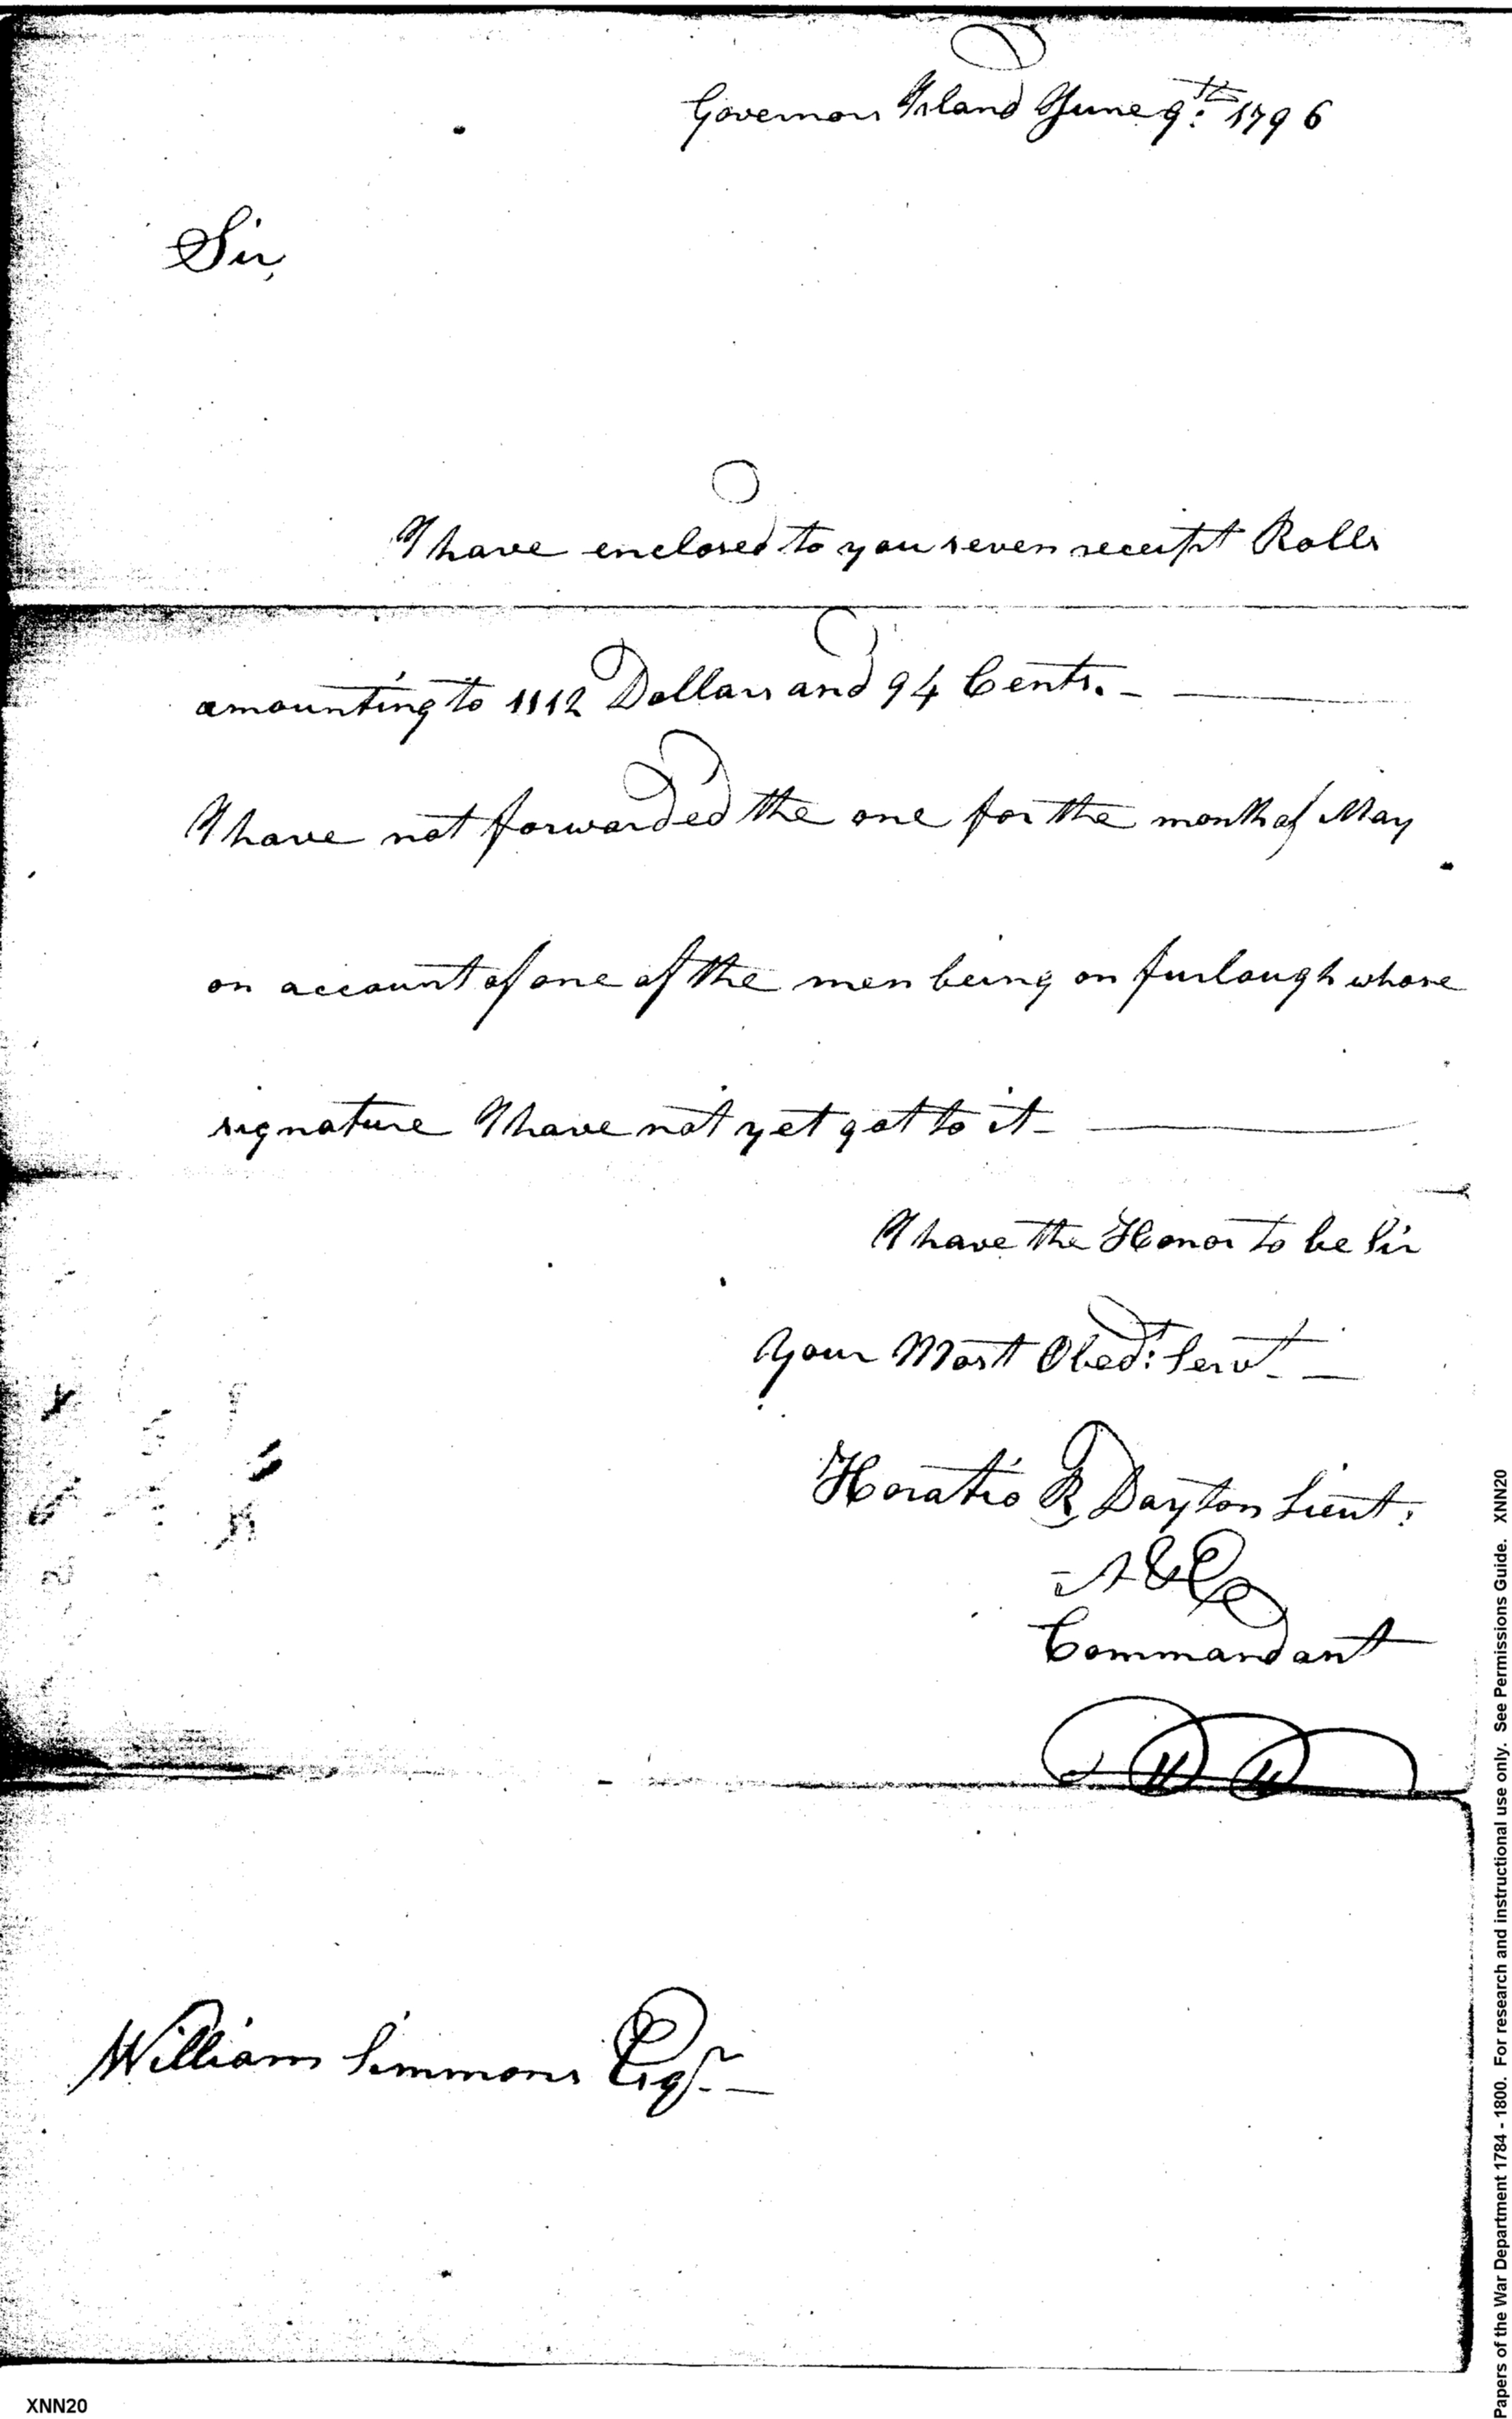 Governors Island June 9th: 1796
Sir,
I have enclosed to you seven receipt Rolls
amounting to 1112 Dollars and 94 Cents. -
I have not forwarded the one for the month of May
on account of one of the men being on furlough whose
signature I have not yet got to it -
I have the Honor to be Sir
Your Most Obedt: Servt -
Horatio R Dayton Lieut:
A&E
Commandant
William Simmons Esqr. -
XNN20
Papers of the War Department 1784 - 1800. For research and instructional use only. See Permissions Guide. XNN20